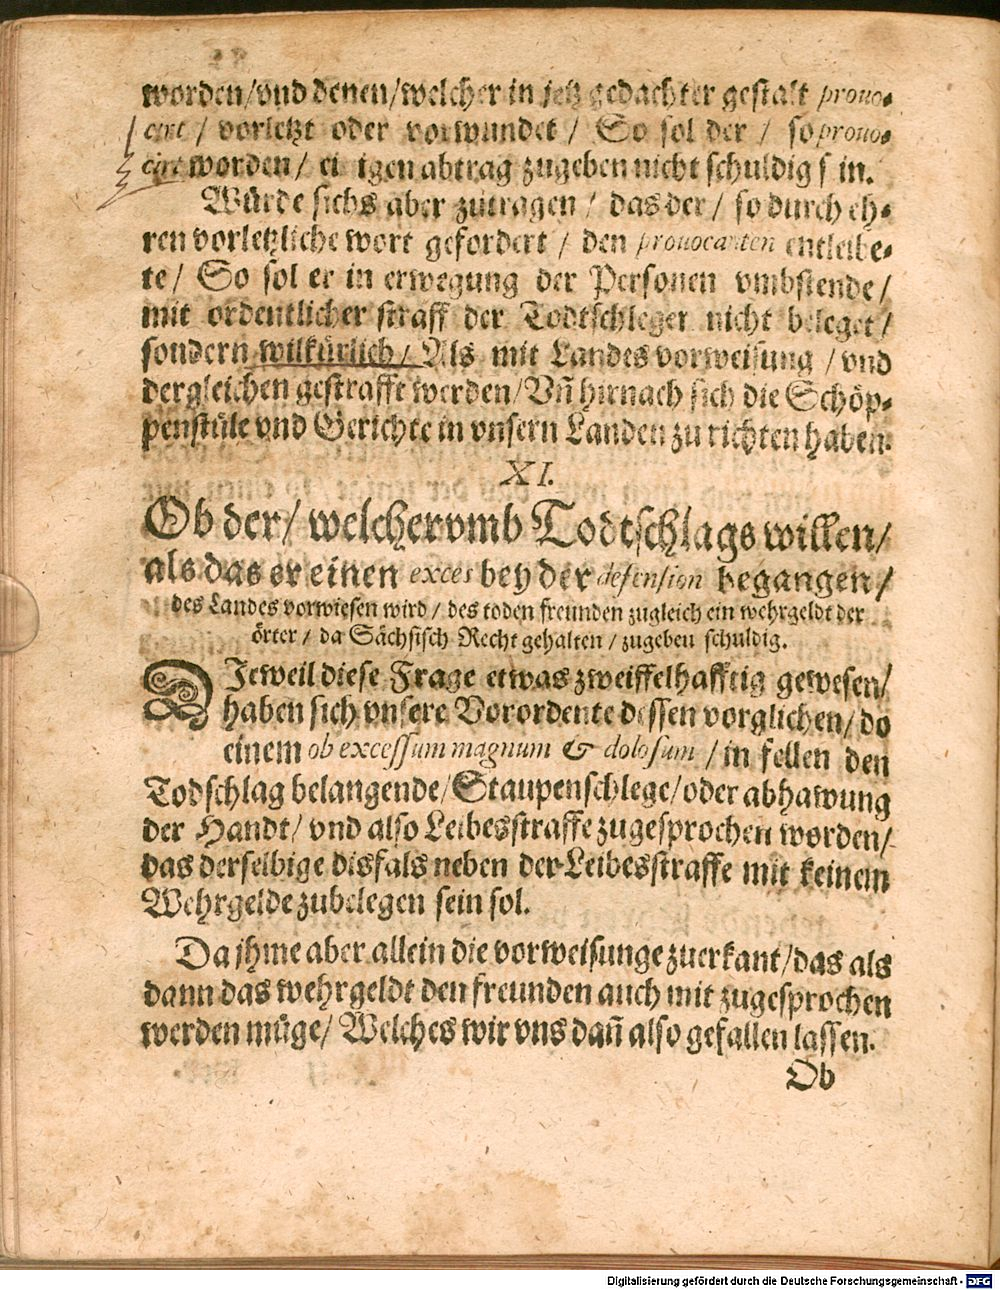 worden/vnd denen/welcher in jetz gedachter gestalt prouo⸗
cirt / vorletzt oder vorwundet / So sol der / so prouo⸗
cirt worden / ei igen abtrag zugeben nicht schuldig s in.
Würde sichs aber zutragen / das der / so durch eh⸗
ren vorletzliche wort gefordert / den prouocanten entleibe⸗
te / So sol er in erwegung der Personen vmbstende /
mit ordentlicher straff der Todtschleger nicht beleget /
sondern wilkürlich / Als mit Landes vorweisung / vnd
dergleichen gestrafft werden / Vñ hirnach sich die Schöp⸗
penstüle vnd Gerichte in vnsern Landen zu richten haben.
XI.
Ob der / welcher vmb Todtschlags willen /
als das er einen exces bey der defension begangen /
des Landes vorwiesen wird / des toden freunden zugleich ein wehrgeldt der
örter / da Sächsisch Recht gehalten / zugeben schuldig.
DJeweil diese Frage etwas zweiffelhafftig gewesen /
haben sich vnsere Vorordente dessen vorglichen / do
einem ob excessum magnum & dolosum / in fellen den
Todschlag belangende / Staupenschlege / oder abhawung
der Handt / vnd also Leibesstraffe zugesprochen worden /
das derselbige disfals neben der Leibesstraffe mit keinem
Wehrgelde zubelegen sein sol.
Da jhme aber allein die vorweisunge zuerkant / das als
dann das wehrgeldt den freunden auch mit zugesprochen
werden müge / Welches wir vns dañ also gefallen lassen.
Ob
Digitalisierung gefördert durch die Deutsche Forschungsgemeinschaft - DFG